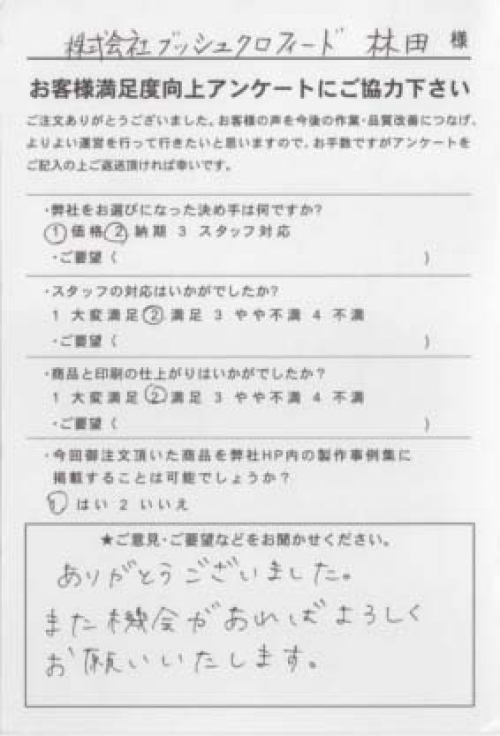 株式会社ブッシュクロフィード 林田 様
お客様満足度向上アンケートにご協力下さい
ご注文ありがとうございました。お客様の声を今後の作業・品質改善につなげ、
よりよい運営を行って行きたいと思いますので、お手数ですがアンケートを
ご記入の上ご返送頂ければ幸いです。
・弊社をお選びになった決め手は何ですか?
1 価格 2 納期 3 スタッフ対応
・ご要望 ( )
・スタッフの対応はいかがでしたか?
1 大変満足 2 満足 3 やや不満 4 不満
・ご要望 ( )
・商品と印刷の仕上がりはいかがでしたか?
1 大変満足 2 満足 3 やや不満 4 不満
・ご要望 ( )
・今回御注文頂いた商品を弊社HP内の製作事例集に
掲載することは可能でしょうか?
1 はい 2 いいえ
★ご意見・ご要望などをお聞かせください。
ありがとうございました。
また機会があればよろしく
お願いいたします。